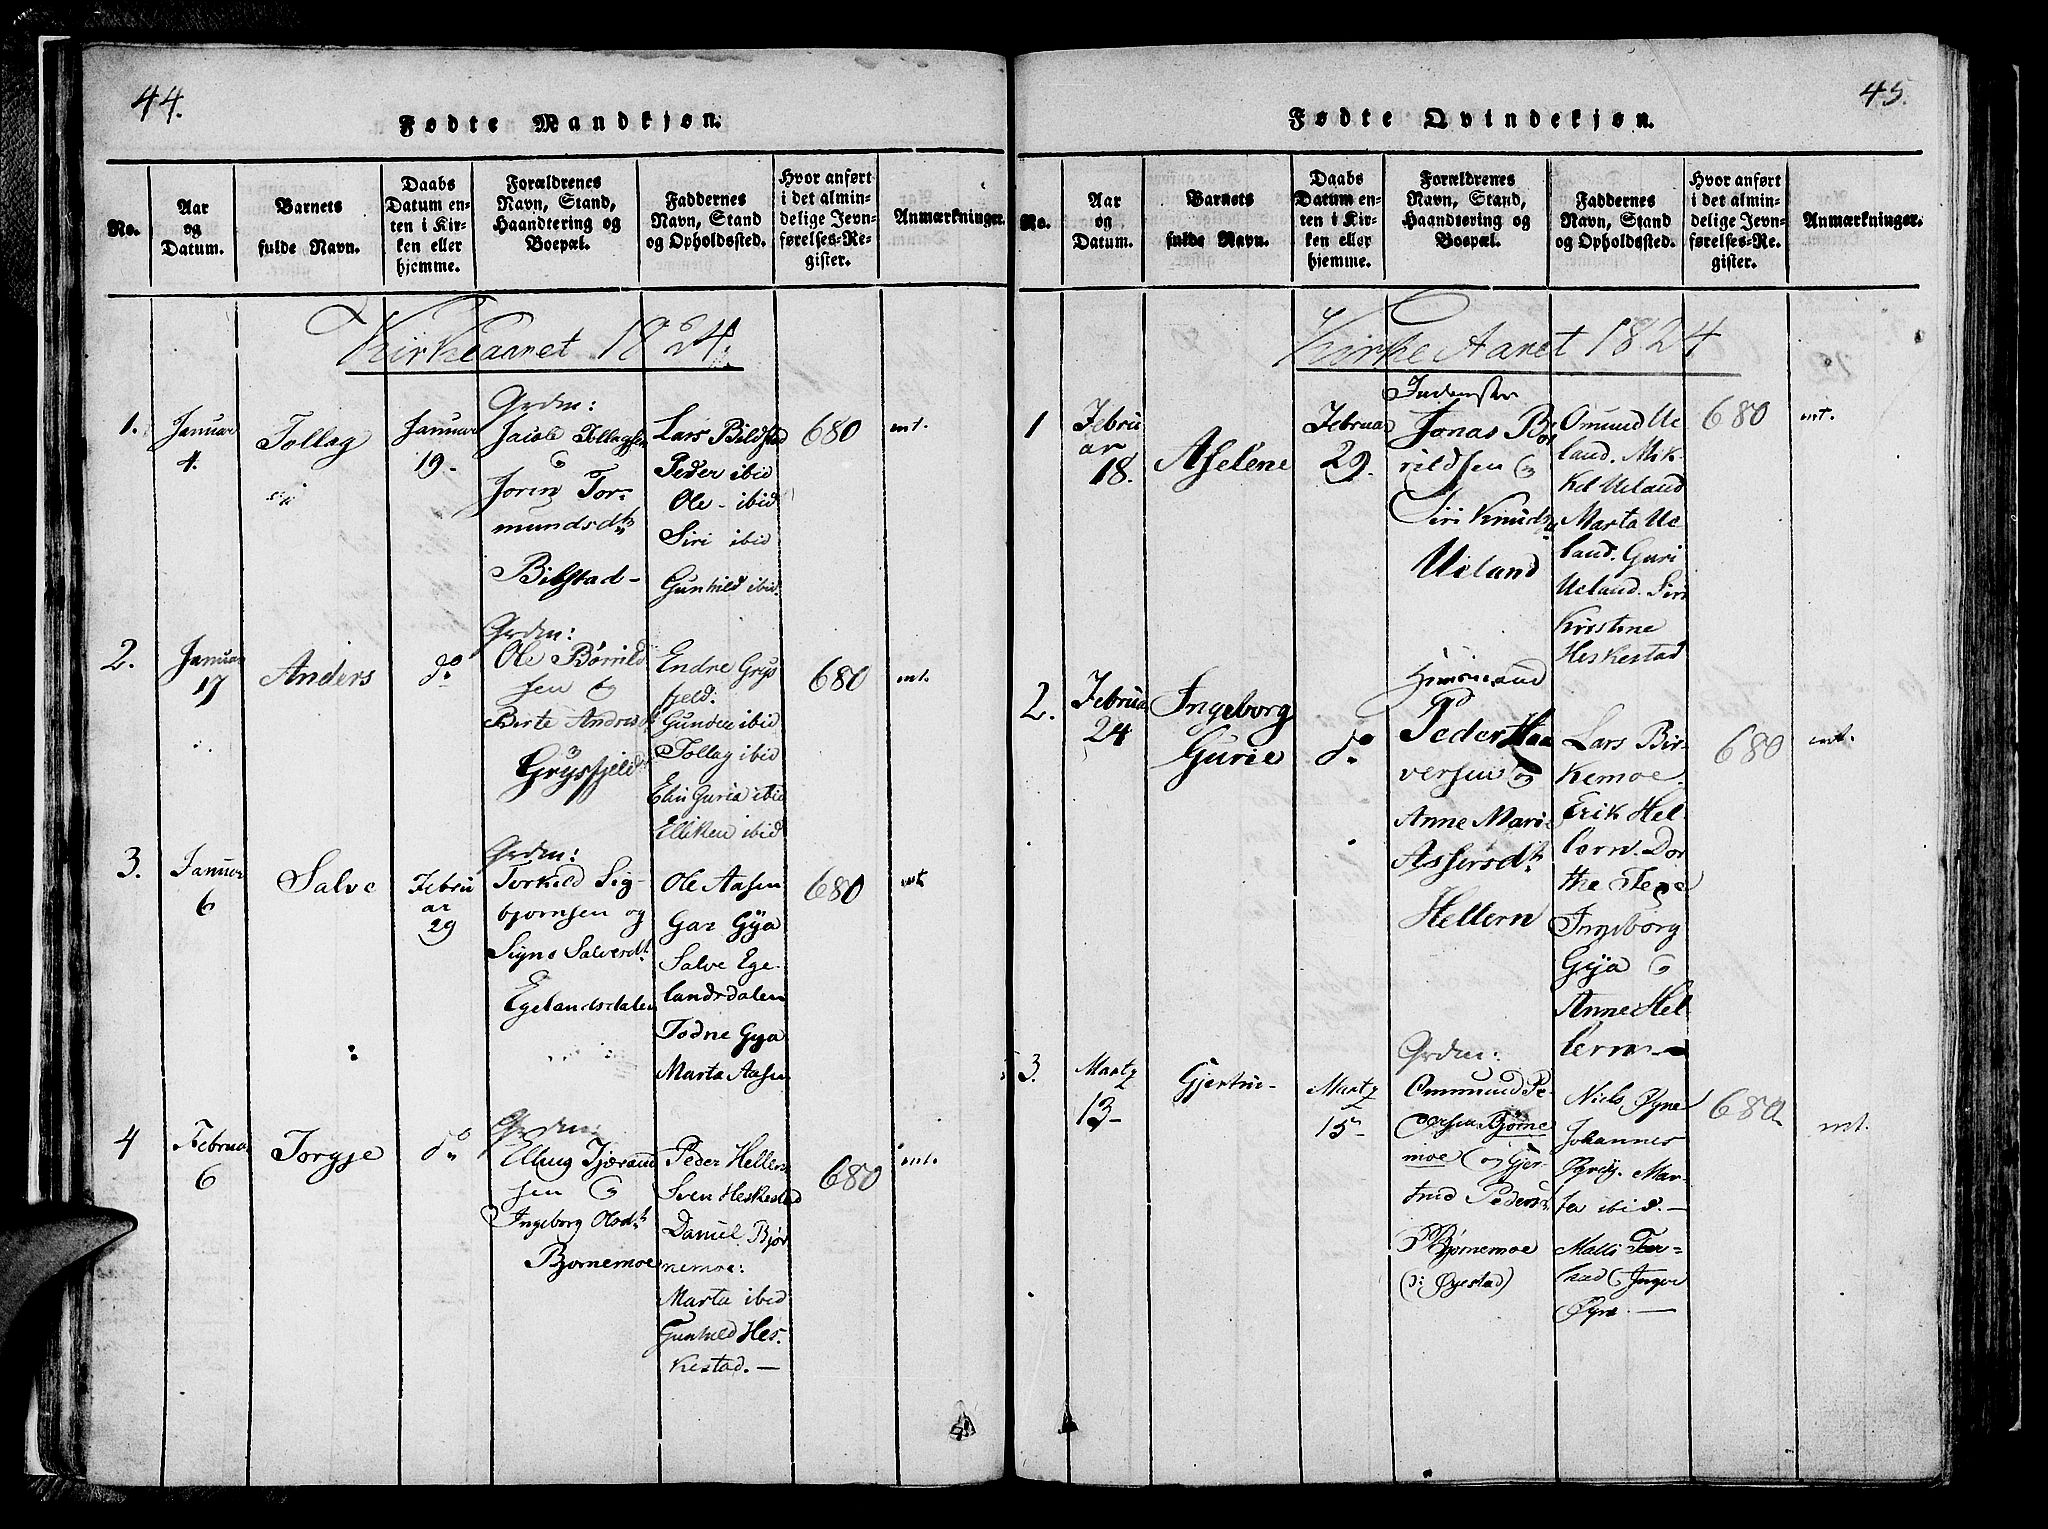 44.
Fødte Mandkjøn.
No.
Aar
og
Datum.
Barnets
fulde Navn.
Daabs
Datum en-
ten i Kir-
ken eller
hjemme.
Forældrenes
Navn, Stand,
Haandtering og
Boepæl.
Faddernes
Navn, Stand
og Opholdssted.
Hvor anført
i det almin-
delige Jevn-
førelses-Re-
gister.
Anmærkninger.
Kirkeaaret 1824.
1.
Januar
4.
Tollag
Januar
19.
Grdm:
Jacob Tollagsen
Joren Tor-
mundsdtr
Bilstad-
Lars Bildstad
Peder ibid
Ole - ibid
Siri ibid
Gunhild ibid.
680
mt.
2.
Januar
17
Anders
do
Grdm:
Ole Børild
sen og
Berte Andersd
Grysfjeld
Endre Grys
fjeld.
Gunder ibid
Tollag ibid
Elin Guria ibid
Elliken ibid
680
mt.
3.
Januar
6
Salve
Febru
ar
29
Grdm:
Torkild Sig-
bjornsen og
Signe Salvesdt.
Egelandsdalen
Ole Aasen
Gar Gya
Salve Ege-
landsdalen
Todne Gya
Marta Aasen
680
mt
4
Februar
6
Torgje
do
Grdm:
Elling Tjæraand
sen
Ingeborg Olsdtr
Bjornemoe
Peder Hellern
Sven Heskestad
Daniel Bjør
nemoe:
Marta ibid
Gunhild Hes-
kestad. —
680
mt.
45.
Fødte Qvindekjøn.
No.
Aar
og
Datum.
Barnets
fulde Navn.
Daabs
Datum en-
ten i Kir-
ken eller
hjemme.
Forældrenes
Navn, Stand,
Haandtering og
Boepæl.
Faddernes
Navn, Stand
og Opholdssted.
Hvor anført
i det almin-
delige Jevn-
førelses-Re-
gister.
Anmærkninger.
Kirke Aaret 1824
1
Febru
ar
18.
Aselene
Februar
29.
Inderster
Jonas Bø
rildsen og
Siri Knudsd
Ueland
Omund Ue
land. Mik-
kel Ueland
Marta Ue
land. Guri
Ueland. Siri
Kirstine
Heskestad
680
mt.
2.
Februar
24
Ingeborg
Gurie
do
Peder Haa
versen og
Anne Marie
Assersdtr
Hellern
Lars Bir-
kemoe.
Erik Hel-
lern. Dor
the Tege
Ingeborg
Gya
Anne Hel
lern —
680
mt.
3.
Martz
13
Gjertru-
Martz
15
Grdm:
Ommund Pe-
dersen Bjørne
moe og Gjer-
trud Pedersd
Bjørnemoe
(ɔ: Øyestad)
Niels Øyne
Johannes
Ørrei. Mar-
ta ibid. —
Malli Tor-
kad Inger
Øyne. —
680
mt.